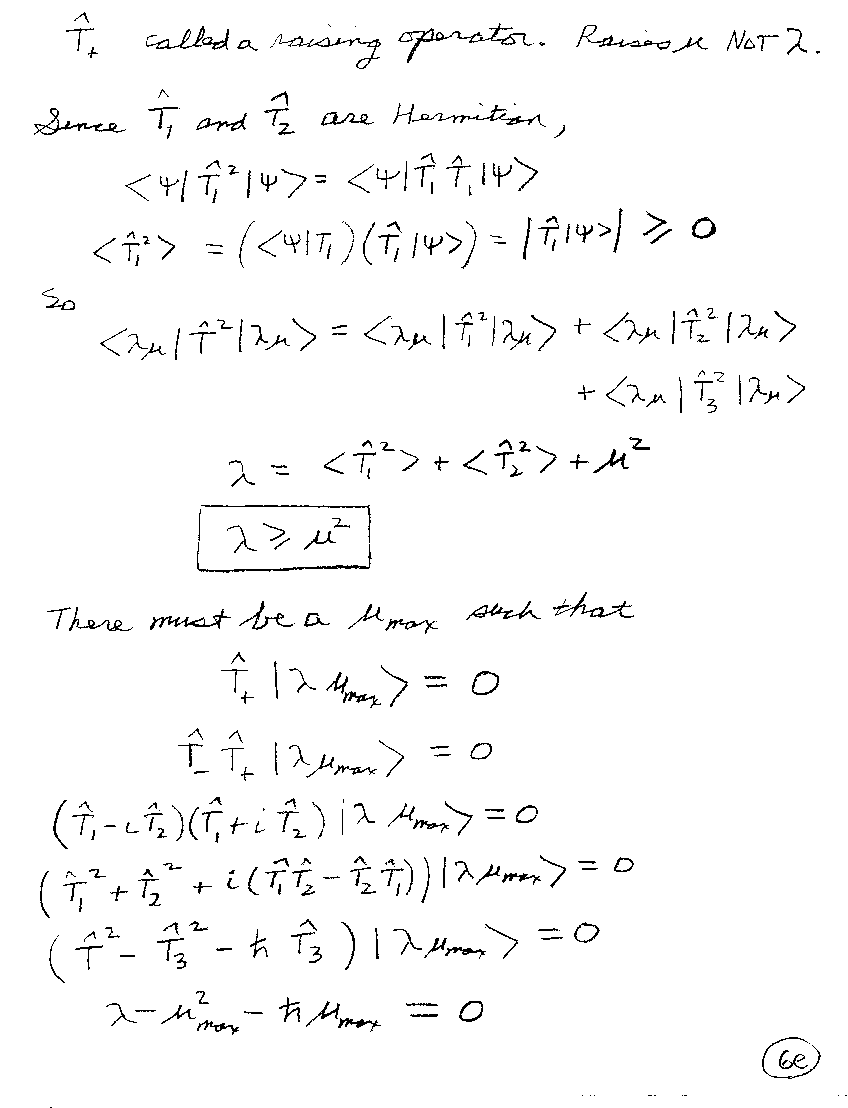 T̂₊ called a raising operator. Raises μ NOT λ.
Since T̂₁ and T̂₂ are Hermitian,
<ψ|T̂₁²|ψ> = <ψ|T̂₁ T̂₁|ψ>
<T̂₁²> = (<ψ|T₁)(T̂₁|ψ>) = |T̂₁|ψ>| ⩾ 0
So
<λμ|T̂²|λμ> = <λμ|T̂₁²|λμ> + <λμ|T̂₂²|λμ>
+ <λμ|T̂₃²|λμ>
λ = <T̂₁²> + <T̂₂²> + μ²
λ ⩾ μ²
There must be a μmax such that
T̂₊ |λ μmax> = 0
T̂₋ T̂₊ |λ μmax> = 0
(T̂₁ - iT̂₂)(T̂₁ + iT̂₂) |λ μmax> = 0
(T̂₁² + T̂₂² + i(T̂₁T̂₂ - T̂₂T̂₁)) |λ μmax> = 0
(T̂² - T̂₃² - ħ T̂₃) |λ μmax> = 0
λ - μ²max - ħ μmax = 0
6e